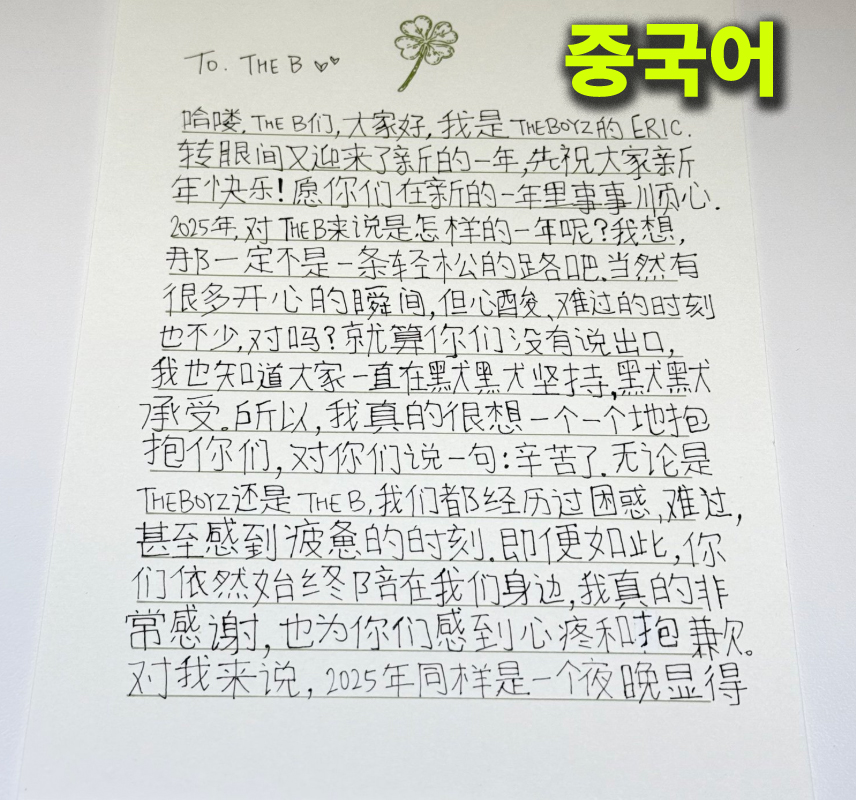 중국어
To. THE B ♡♡
哈喽, THE B们, 大家好, 我是 THEBOYZ的 ERIC.
转眼间又迎来了新的一年, 先祝大家新
年快乐! 愿你们在新的一年里事事顺心.
2025年, 对 THE B来说是怎样的一年呢? 我想,
那一定不是一条轻松的路吧. 当然有
很多开心的瞬间, 但心酸、难过的时刻
也不少, 对吗? 就算你们没有说出口,
我也知道大家一直在默默坚持, 默默
承受. 所以, 我真的很想一个一个地抱
抱你们, 对你们说一句: 辛苦了. 无论是
THEBOYZ还是 THE B, 我们都经历过困惑、难过,
甚至感到疲惫的时刻. 即便如此, 你
们依然始终陪在我们身边, 我真的非
常感谢, 也为你们感到心疼和抱歉。
对我来说, 2025年同样是一个夜晚显得